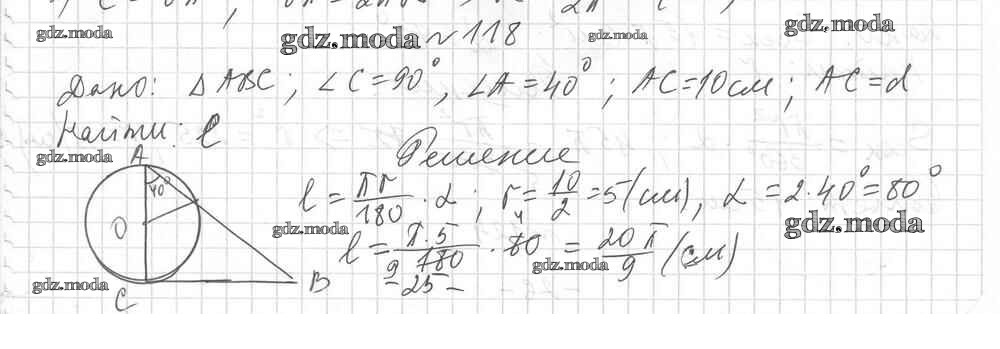 gdz.moda gdz.moda № 118 gdz.moda gdz.moda
Дано: △ABC; ∠C = 90°, ∠A = 40°; AC = 10 см; AC = d
Найти: ℓ
gdz.moda Решение
A
40°
O
B
C
ℓ = πr/180 · α; r = 10/2 = 5 (см), α = 2·40° = 80°
gdz.moda gdz.moda
ℓ = π·5/180 · 80 = 20π/9 (см)
9 4
gdz.moda gdz.moda
- 25 -